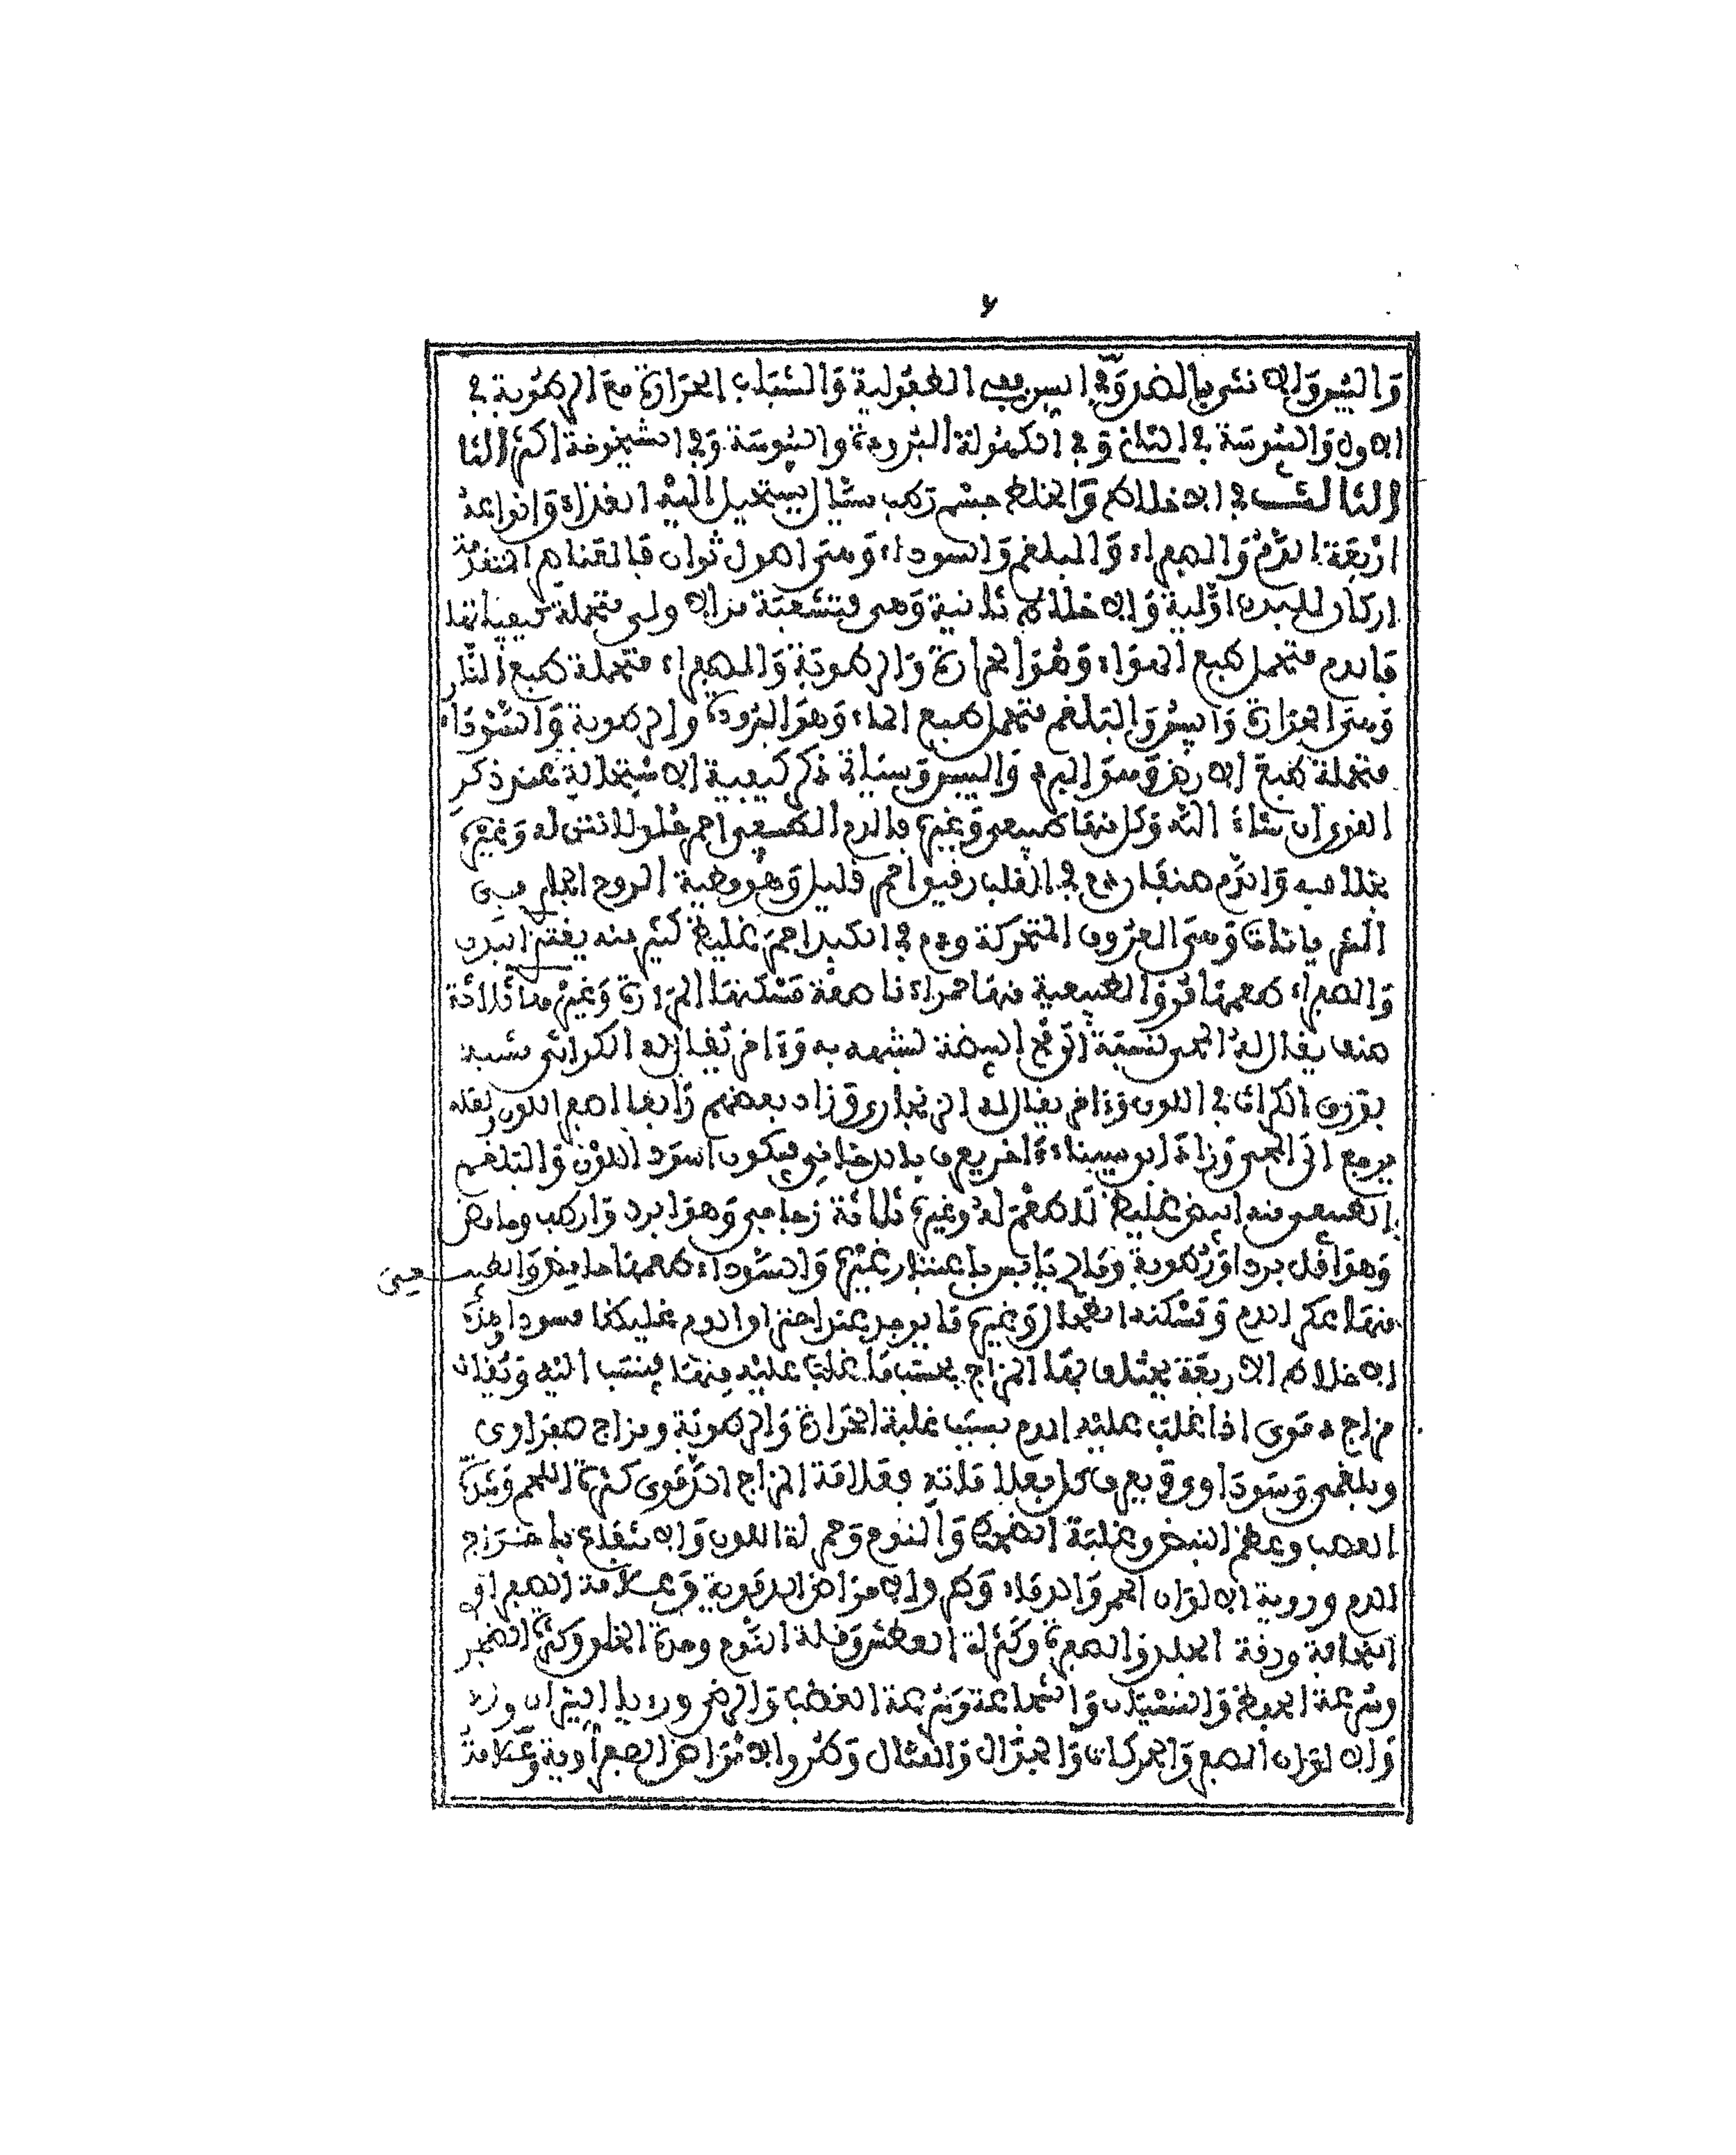 ٧
واليبس والانثى بالضد وفي السن ففي الطفولية والشباب الحرارة مع الرطوبة في
الاول واليبوسة في الثاني وفي الكهولة البرودة واليبوسة وفي الشيخوخة أكثر
الثالث في الاخلاط والخلط جسم رطب سيال يستحيل اليه الغذاء وانواعه
اربعة الدم والصفراء والبلغم والسوداء وهي اصول ثوان فالعناصر المتقدمة
اركان للبدن اولية والاخلاط ثانية وهي متشعبة من الاولى متحملة كيفياتها
فالدم متحمل طبع الهواء وهو الحرارة والرطوبة والصفراء متحملة طبع النار
وهي الحرارة واليبس والبلغم متحمل طبع الماء وهو البرودة والرطوبة والسوداء
متحملة طبع الارض وهو البرد واليبس وسياتي ذكر كيفية الاستحالة عند ذكر
القوى ان شاء الله وكل منها طبيعي وغيره فالدم الطبيعي احمر حلو لا نتن له وغيره
بخلافه والدم صنفان دم في القلب رقيق احمر قليل وهو مطية الروح الجار في
الشريانات وهي العروق المتحركة ودم في الكبد احمر غليظ كثير منه يغتذي البدن
والصفراء طعمها مر والطبيعية منها حمراء ناصعة مسكنها المرارة وغيرها ثلاثة
منها يقال له المحي نسبة الى مح البيضة لشبهه به وءاخر يقال له الكراثي شبيه
بورق الكراث في اللون وءاخر يقال له الزنجاري وزاد بعضهم رابعا اصفر اللون ولعله
يرجع الى المحي وزاد ابن سيناء ءاخر يعرف بالدخاني فيكون اسود اللون والبلغم
الطبيعي منه ابيض غليظ لا طعم له وغيره ثلاثة زجاجي وهو ابرد وارطب وحامض
وهو اقل بردا ورطوبة ومالح يابس باعتبار غيره والسوداء طعمها حامض والطبيعي
منها عكر الدم ومسكنه الطحال وغيره ما يوجد عند احتراق الدم غليظا مسودا وهذه
الاخلاط الاربعة يختلف بها المزاج بحسب ما غلب عليه منها ينسب اليه ويقال
مزاج دموي اذا غلب عليه الدم بسبب غلبة الحرارة والرطوبة ومزاج صفراوي
وبلغمي وسوداوي ويعرف كل بعلاماته فعلامة المزاج الدموي كثرة اللحم وشدة
العصب وعظم النبض وغلبة الضحك والنوم وحمرة اللون والانتفاع باخراج
الدم وروية الالوان الحمر والدماء وطرو الامراض الدموية وعلامة الصفراوي
النحافة ورقة الجلد والصفرة وكثرة العطش وقلة النوم وحدة الخلق وكثرة الضجر
وسرعة الحفظ والنسيان والشجاعة وسرعة الغضب والرضى ورويا النيران
والالوان الصفر والحركات والجدال والقتال وطرو الامراض الصفراوية وعلامة